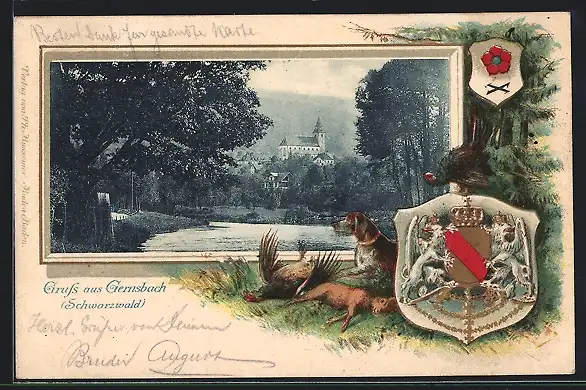 Besten Dank für gesandte Karte
Verlag von
Baden-Baden.
Gruß aus Gernsbach
(Schwarzwald)
Herzl. Grüße von Deinem
Bruder August